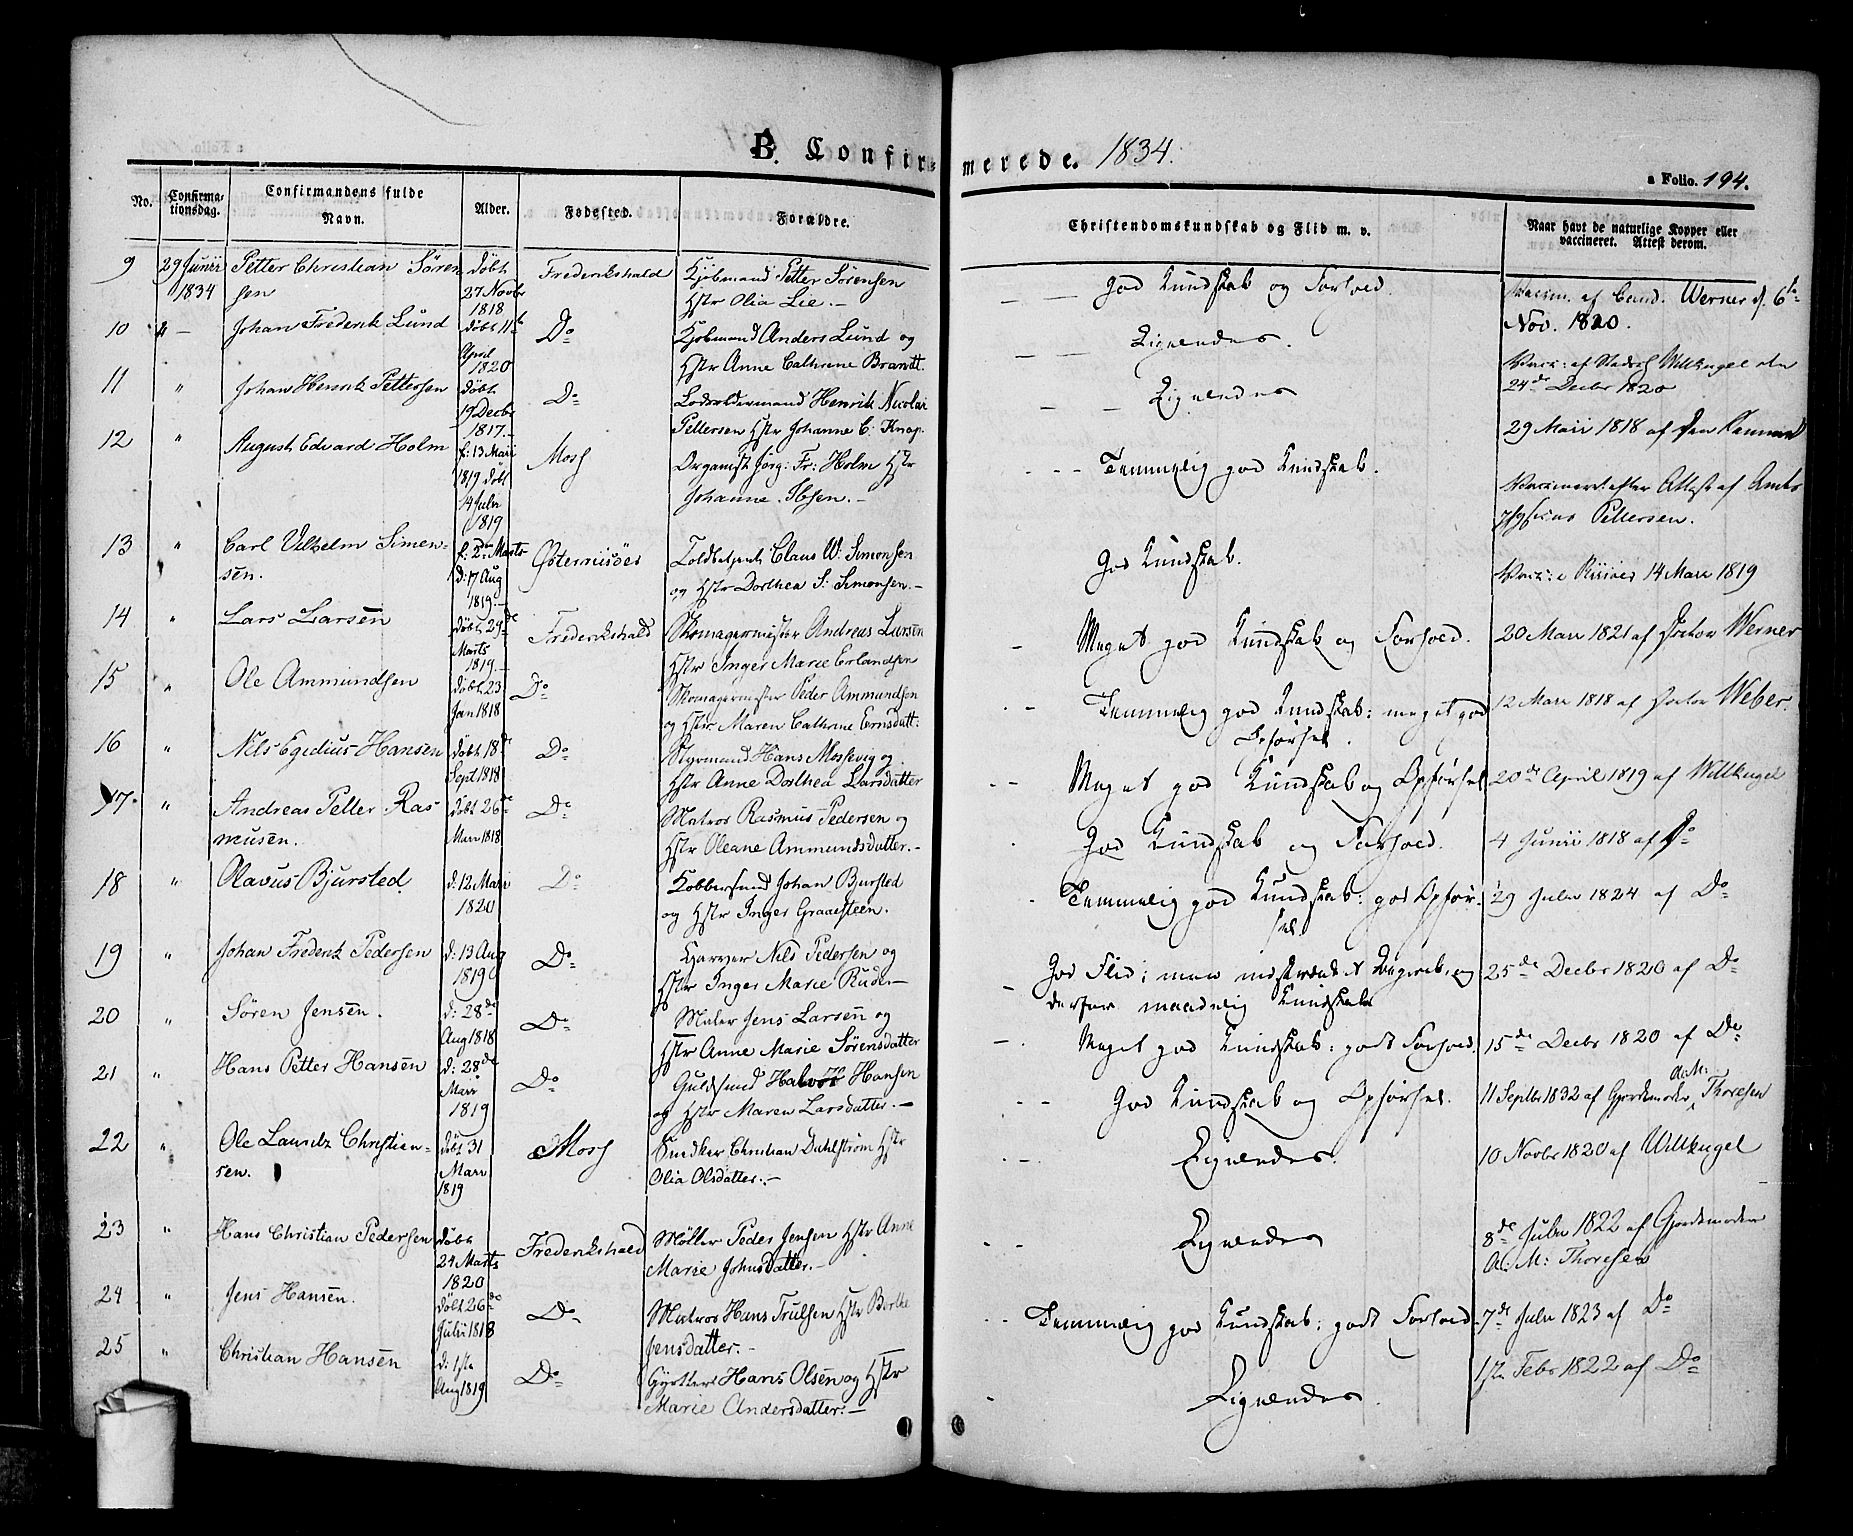 B. Confirmerede. 1834.
a Folio. 194.
No.
Confirmationsdag.
Confirmandens fulde Navn.
Alder.
Fødested.
Forældre.
Christendomskundskab og Flid m. v.
Naar havt de naturlige Kopper eller vaccineret. Attest derom.
9 29 Junii Petter Christian Sören døbt Frederikshald Kjøbmand Petter Sörensen God Kundskab og Forhold. Vaccin. af Cand. Werner d. 6te
1834 sen 27 Novbr Hstr Olia Lie. — Nov. 1820.
1818
10 " — Johan Frederik Lund døbt 11te Do Kjøbmand Anders Lund og Lignendes. Vacc: af Willkugel den
April Hstr Anne Cathrine Brandt. 24de Decbr 1820
1820
11 " Johan Henrik Pettersen døbt Do Lodsoldermand Henrik Nicolai Lignendes 29 Maii 1818 af
17 Decbr Pettersen Hstr Johanne C. Knap.
1817. —
12 " August Edvard Holm f: 13 Maii Moss Organist Jörg: Fr: Holm Hstr Temmelig god Kundskab. Vaccineret efter Attest af
1819 døbt Johanne Ibsen. — Pettersen.
14 Julii
1819
13 " Carl Vilhelm Simen- f: 2den Marts Østerriisöer Toldbetjent Claus W: Simonsen God Kundskab. Vacc: i Riisöer 14 Marc 1819
sen. d: 7 Aug og Hstr Dorthea S: Simonsen. —
1819. —
14 " Lars Larsen døbt 29de Frederikshald Skomagermester Andreas Larsen Meget god Kundskab og Forhold. 20 Marc 1821 af Doctor Werner
Marts Hstr Inger Marie Erlandsen
1819. —
15 " Ole Ammundsen døbt 23 Do Skomagermester Peder Ammundsen Temmelig god Kundskab: meget god 12 Marc 1818 af Doctor Weber.
Jan 1818 og Hstr Maren Cathrine Ernsdatt: Opførsel.
16 " Nils Egidius Hansen døbt 18de Do Styrmand Hans Mossevig og Meget god Kundskab og Opførsel 20de April 1819 af Willkugel
Sept 1818 Hstr Anne Dorthea Larsdatter
17. " Andreas Petter Ras døbt 26de Do Matros Rasmus Pedersen og God Kundskab og Forhold. 4 Junii 1818 af Do
musen. 1818 Hstr Oleane Ammundsdatter. —
18 " Olavus Bjursted d: 12 Maii Do Kobbersmed Johan Bjursted Temmelig god Kundskab: god Opfør- 29 Julii 1824 af Do
1820 og Hstr Inger Graaesteen. sel.
19 " Johan Frederik Pedersen d: 13 Aug Do Garver Nils Pedersen og God Flid; men indskrænket Begreb, og 25de Decbr 1820 af Do
1819 Hstr Inger Marie Rude — derfor maadelig Kundskab
20 " Sören Jensen. d: 28de Do Maler Jens Larsen og Meget god Kundskab: godt Forhold. 15de Decbr 1820 af Do
Aug 1818 Hstr Anne Marie Sörensdatter
21 " Hans Petter Hansen d: 28de Do Guldsmed Halvor Hansen God Kundskab og Opførsel. 11 Septbr 1832 af Gjordemoder A:M: Thoresen
Mars og Hstr Maren Larsdatter. —
1819
22 " Ole Lauritz Christian- døbt 31 Moss Snedker Christian Dahlström Hstr Lignendes. 10 Novbr 1820 af Willkugel
sen. Olia Olsdatter. —
1819
23 " Hans Christian Pedersen døbt Frederikshald Møller Peder Jensen Hstr Anne Lignendes 8de Julii 1822 af Gjordemoder
24 Marts Marie Johnsdatter. — A: M: Thoresen
1820
24 " Jens Hansen. døbt 26de Do Matros Hans Trulsen Hstr Berthe Temmelig god Kundskab; godt Forhold 7de Julii 1823 af Do
Julii 1818 Jensdatter. —
25 " Christian Hansen d: 1ste Do Gjørtler Hans Olsen og Hstr Lignendes. 1ste Febr 1822 af Do
Aug 1819 Marie Andersdatter. —